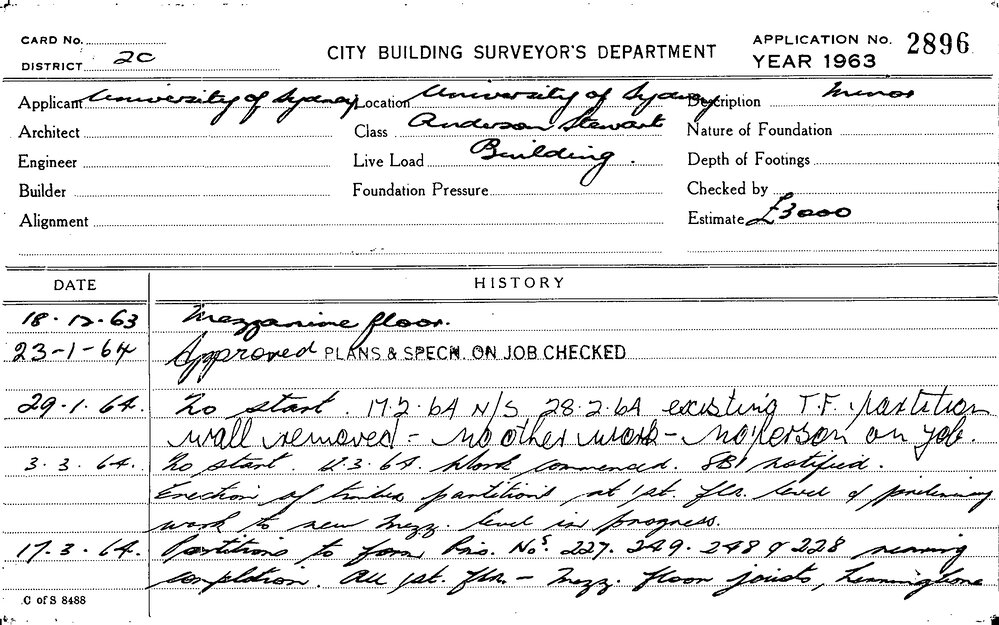 CARD No.
DISTRICT 2C
CITY BUILDING SURVEYOR'S DEPARTMENT
APPLICATION No. 2896
YEAR 1963
Applicant University of Sydney Location University of Sydney Description Minor
Architect Class Anderson Stewart Nature of Foundation
Engineer Live Load Building. Depth of Footings
Builder Foundation Pressure Checked by
Alignment Estimate £3000
DATE HISTORY
18.12.63 Mezzanine floor.
23-1-64 Approved PLANS & SPECN. ON JOB CHECKED
29.1.64. No start. 17.2.64 N/S 28.2.64 existing T.F. partition
wall removed - no other work - no person on job.
3.3.64. No start. 12.3.64. Work commenced. SBI notified.
Erection of timber partitions at 1st. flr. level & preliminary
work to new mezz. level in progress.
17.3.64. Partitions to form Rms. Nos. 227. 249. 248 & 228 nearing
completion. All 1st. flr. - Mezz. floor joists,
C of S 8488